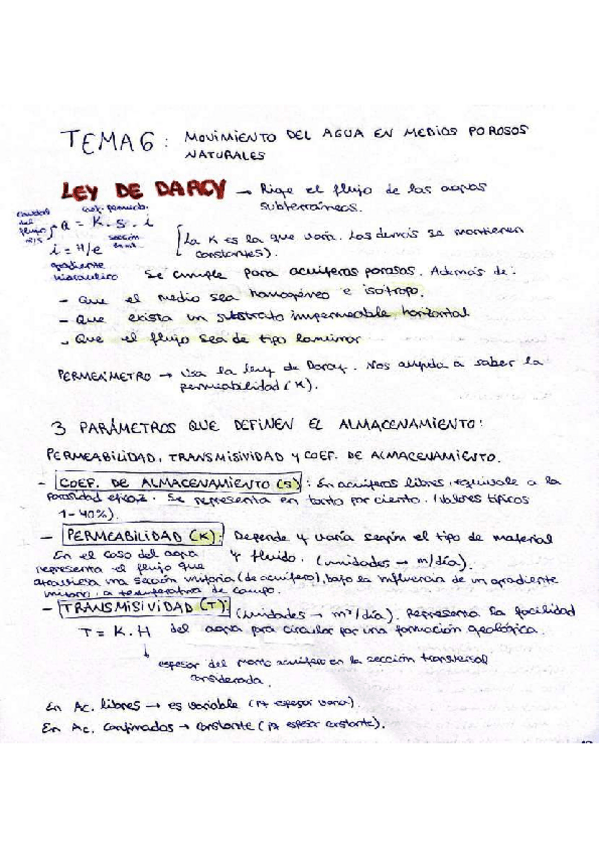 TEMA 6: MOVIMIENTO DEL AGUA EN MEDIOS POROSOS
NATURALES
LEY DE DARCY → Rige el flujo de las aguas
subterráneas.
caudal del flujo m³/s
coef. permeab.
Q = K. S. i
sección
i = H/e
gradiente hidraulico
[La K es la que varía. Los demás se mantienen
constantes).
Se cumple para acuíferos porosos. Además de:
- Que el medio sea homogéneo e isótropo.
- Que exista un substrato impermeable horizontal
- Que el flujo sea de tipo laminar
PERMEÁMETRO → usa la ley de Darcy. Nos ayuda a saber la
permeabilidad (K).
3 PARÁMETROS QUE DEFINEN EL ALMACENAMIENTO:
PERMEABILIDAD, TRANSMISIVIDAD Y COEF. DE ALMACENAMIENTO.
- COEF. DE ALMACENAMIENTO (S): En acuíferos libres, equivale a la
porosidad eficaz. Se representa en tanto por ciento. (Valores típicos
1-40%).
- PERMEABILIDAD (K): Depende y varía según el tipo de material
y fluido. (unidades → m/día).
En el caso del agua
representa el flujo que
atraviesa una sección unitaria (de acuífero), bajo la influencia de un gradiente
unitario, a temperatura de campo.
- TRANSMISIVIDAD (T): (unidades → m²/día). Representa la facilidad
T = K. H del agua para circular por una formación geológica.
espesor del manto acuífero en la sección transversal
considerada.
En Ac. libres → es variable (pq espesor varía).
En Ac. confinados → constante (pq espesor constante).